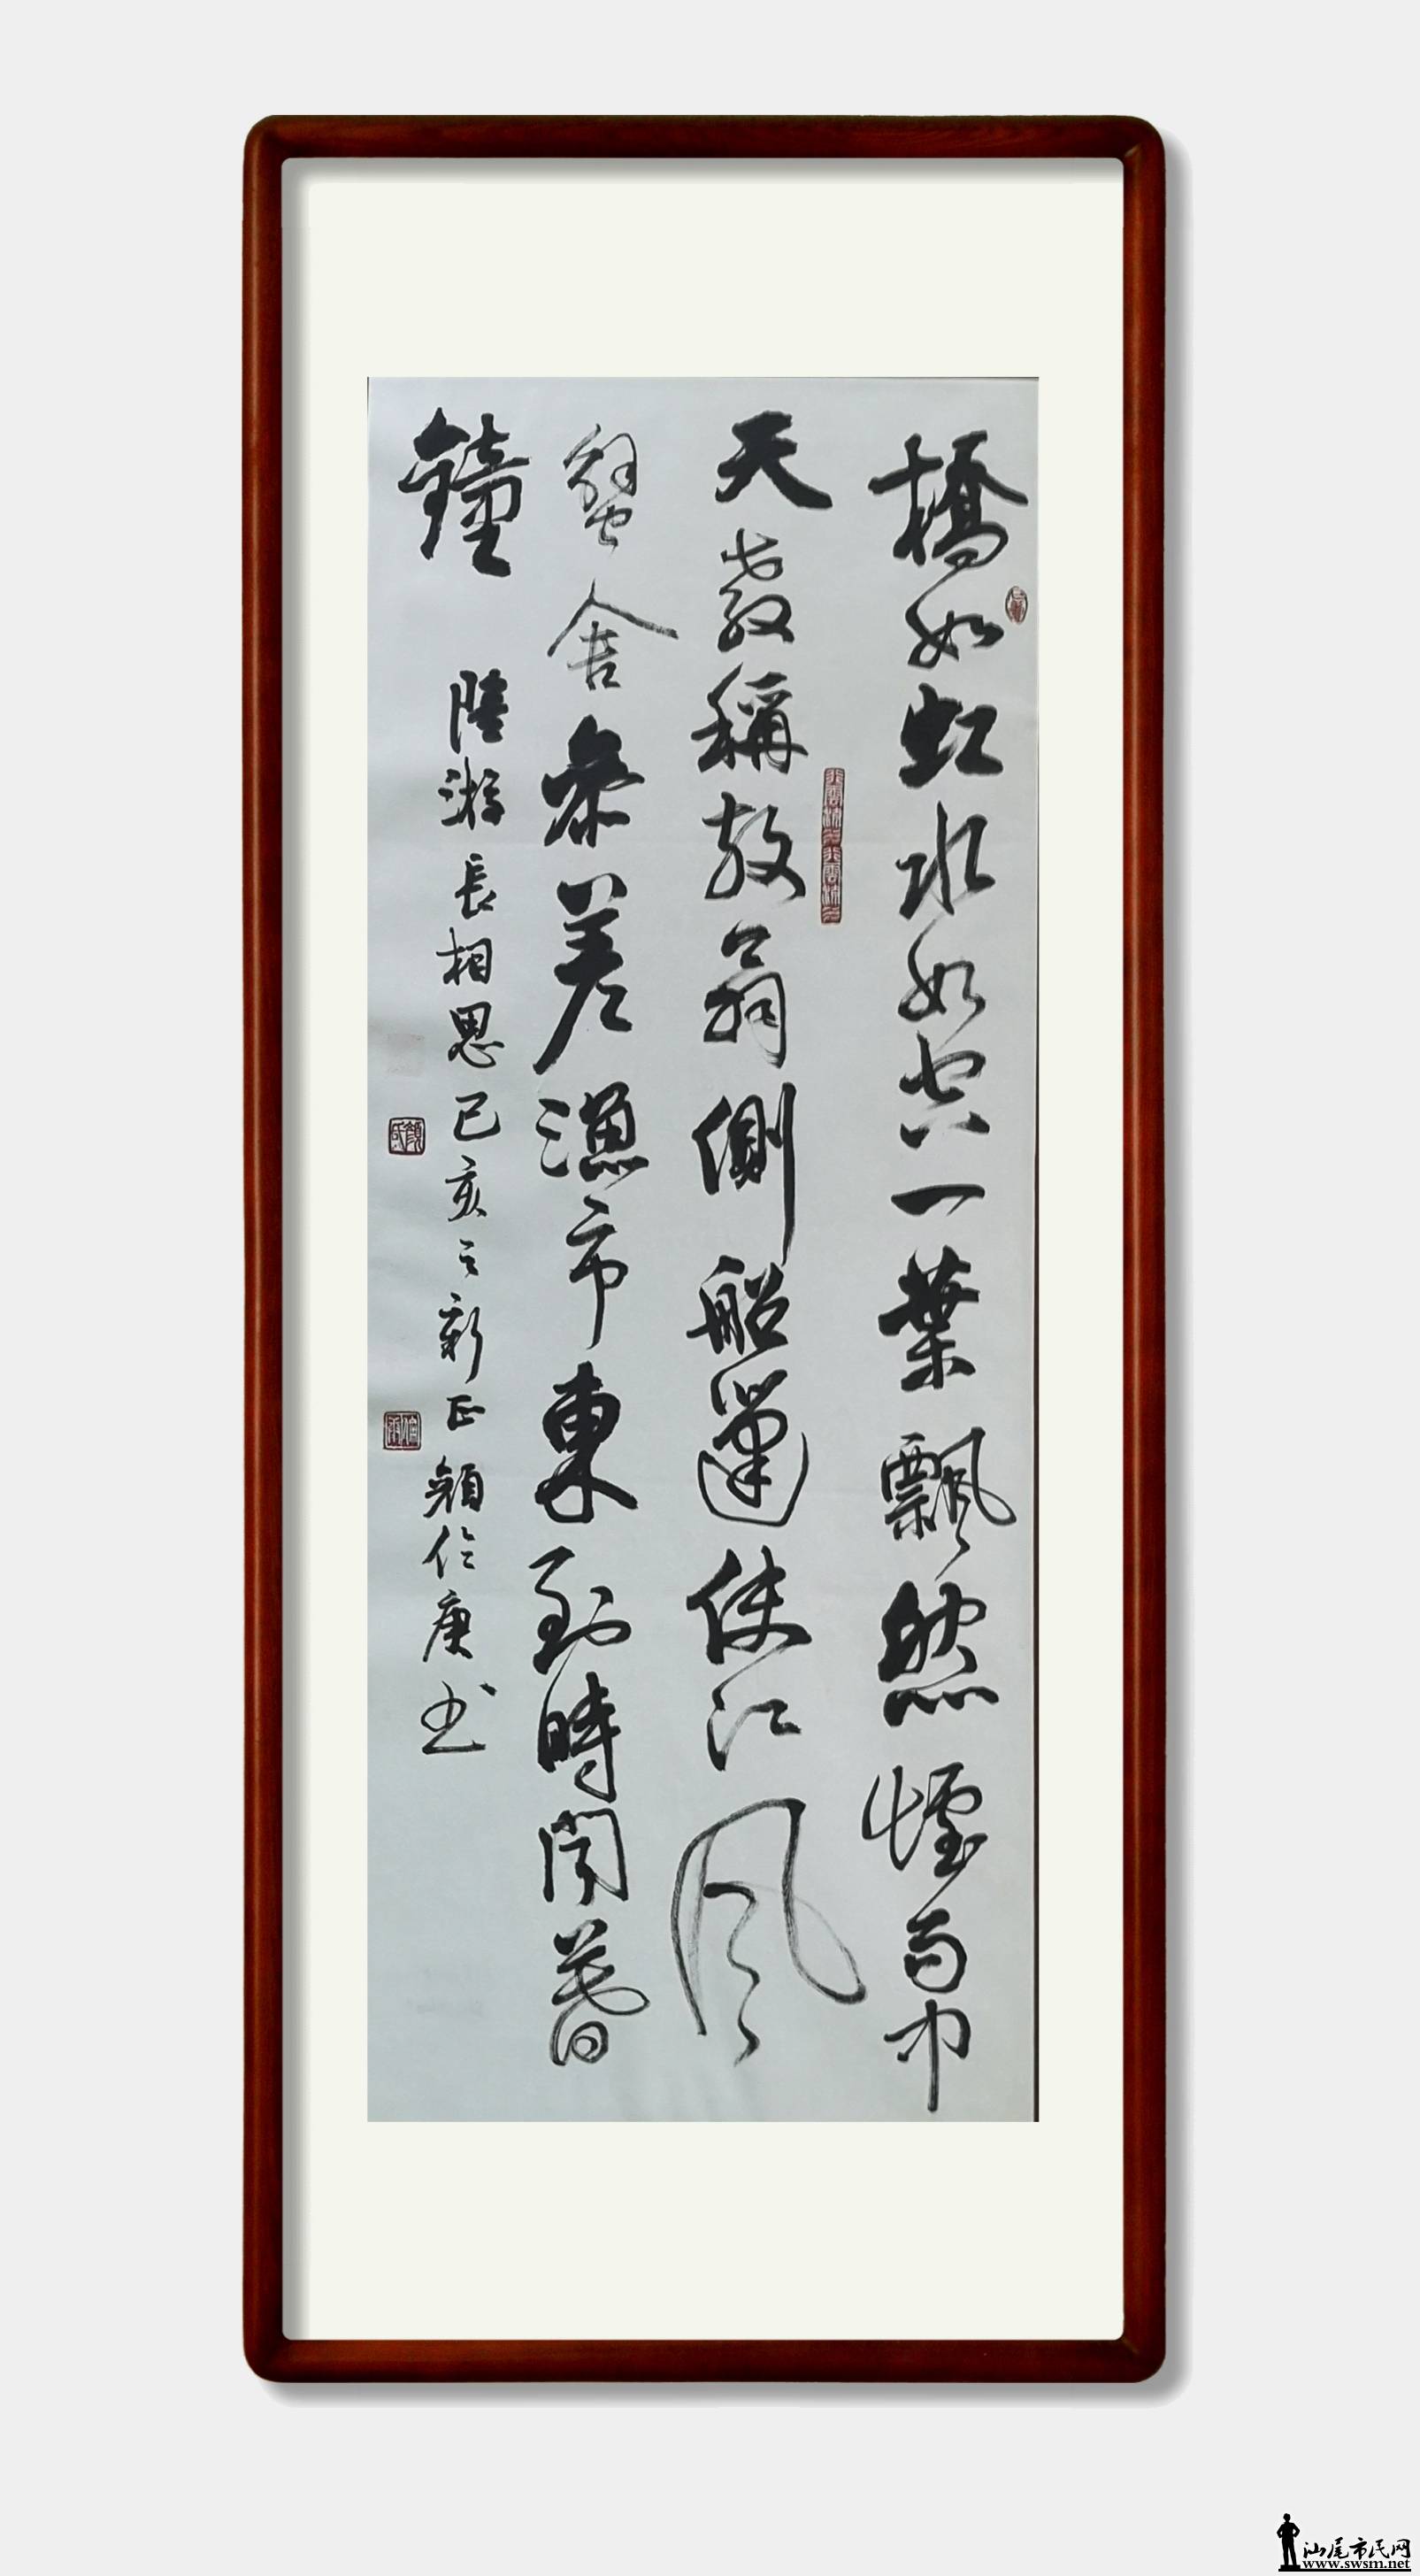 橋如虹水如空一葉飄然煙雨中
天教稱放翁側船篷使江風
蟹舍參差漁市東到時聞暮
鐘
陸游長相思己亥之新正顏伦庚书
汕尾市民网
www.swsm.net